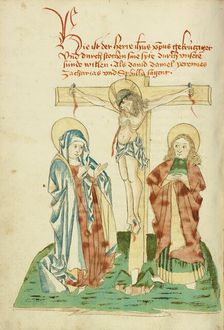 Hie ist der herre ihus xpus gekrutziget
Vnd durch stochen sine syte durch vnsere
sunde willen · als dauid daniel Jeremies
zacharias vnd Sybilla sagent